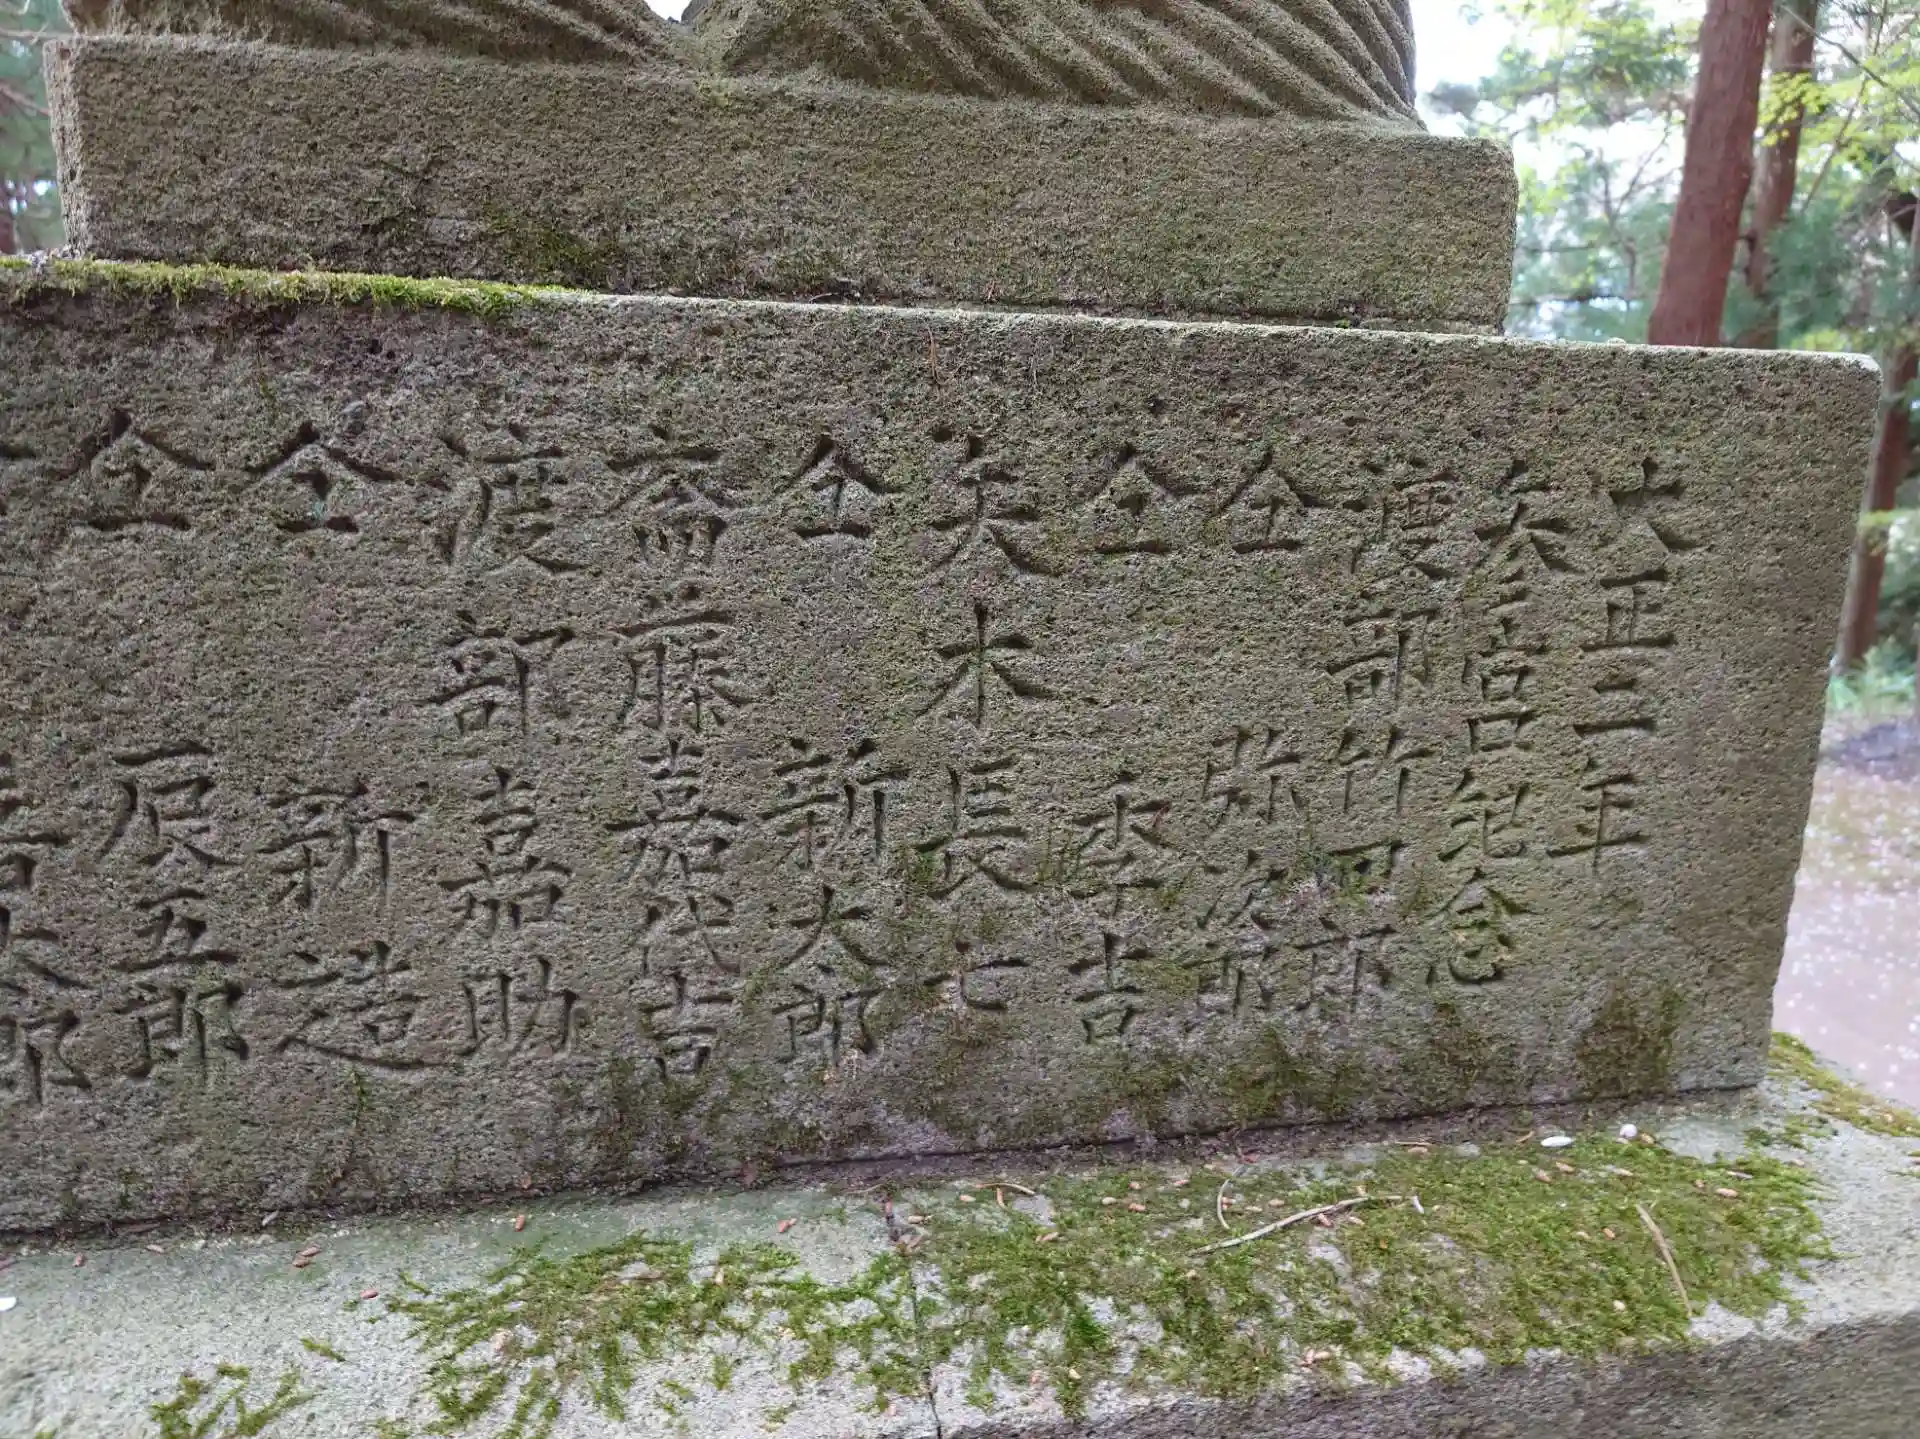 大正二年
参宮紀念
渡部竹四郎
仝 弥次郎
仝 季吉
矢木長七
仝 新太郎
斎藤嘉代吉
渡部喜助
仝 新造
仝 辰五郎